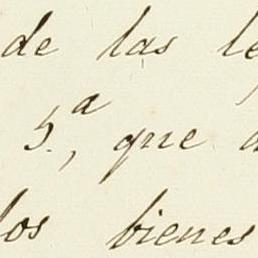 de las le
5.ª, que a
los bienes